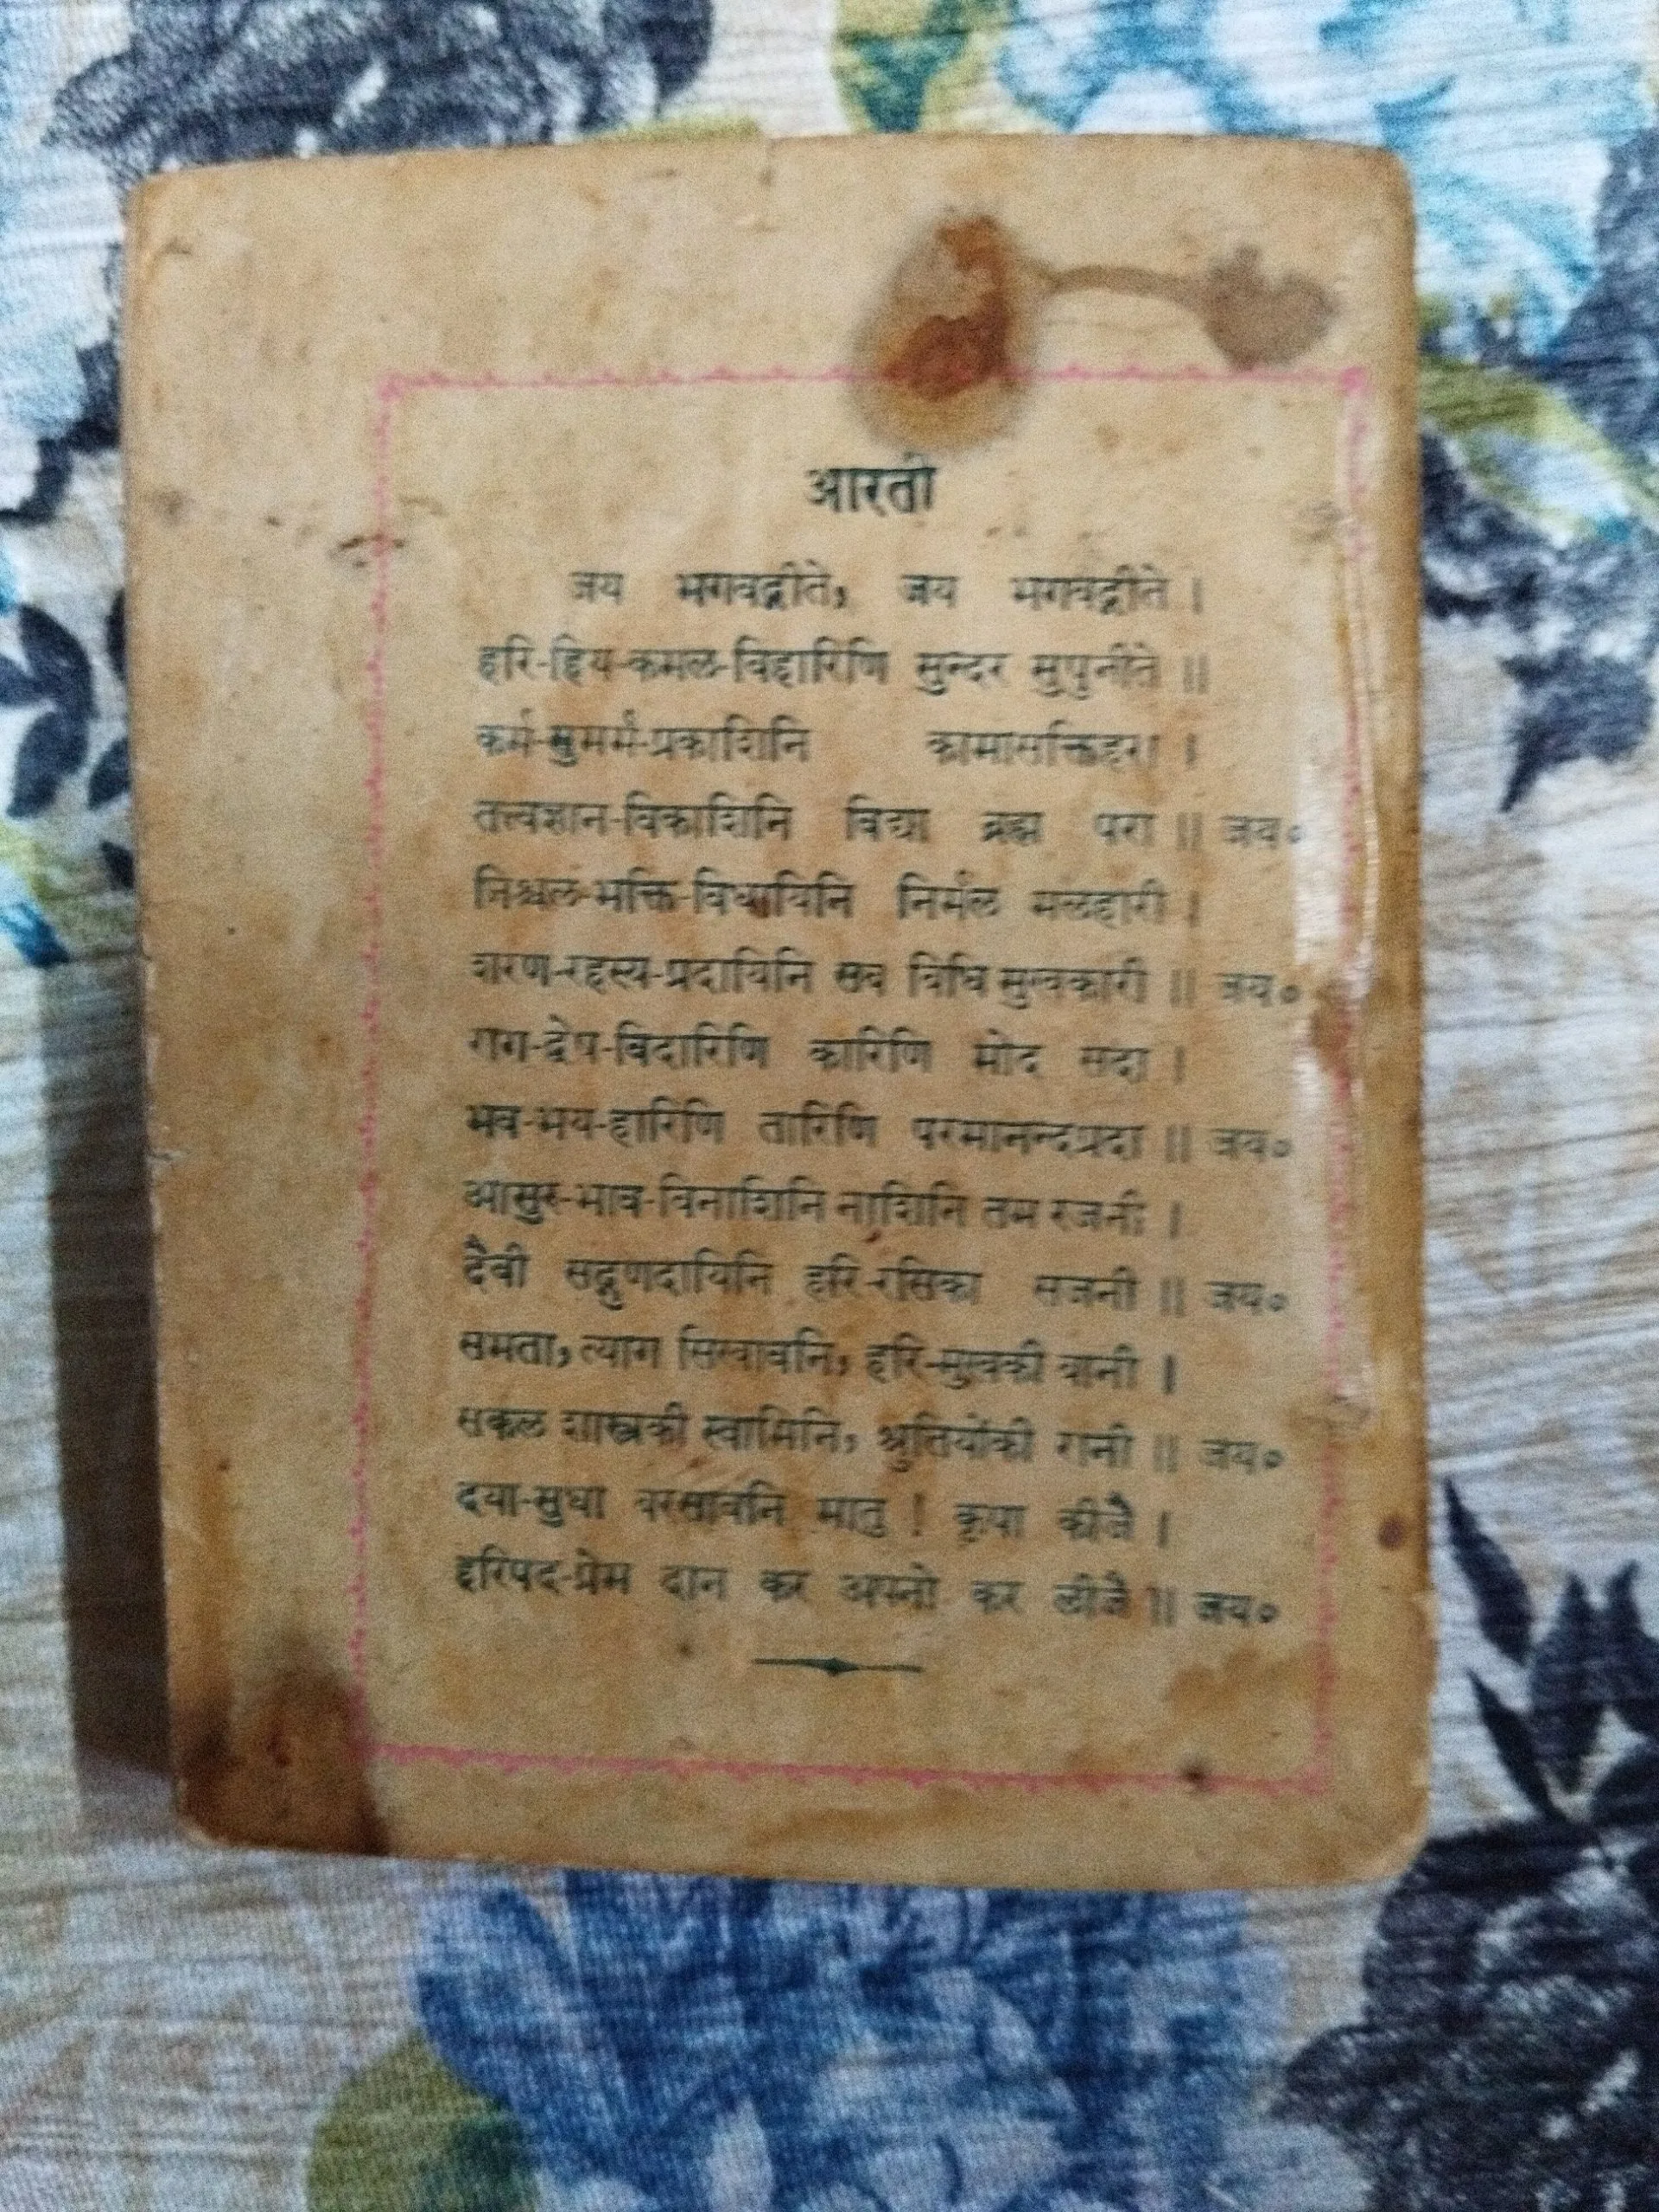 आरती
जय भगवद्गीते, जय भगवद्गीते ।
हरि-हिय-कमल-विहारिणि सुन्दर सुपुनीते ॥
कर्म-सुमर्म-प्रकाशिनि कामासक्तिहरा ।
तत्त्वज्ञान-विकाशिनि विद्या ब्रह्म परा ॥ जय०
निश्चल-भक्ति-विधायिनि निर्मल मलहारी ।
शरण-रहस्य-प्रदायिनि सब विधि सुखकारी ॥ जय०
राग-द्वेष-विदारिणि कारिणि मोद सदा ।
भव-भय-हारिणि तारिणि परमानन्दप्रदा ॥ जय०
आसुर-भाव-विनाशिनि नाशिनि तम रजनी ।
दैवी सद्गुणदायिनि हरि-रसिका सजनी ॥ जय०
समता, त्याग सिखावनि, हरि-मुखकी बानी ।
सकल शास्त्रकी स्वामिनि, श्रुतियोंकी रानी ॥ जय०
दया-सुधा बरसावनि मातु ! कृपा कीजै ।
हरिपद-प्रेम दान कर अपनो कर लीजै ॥ जय०